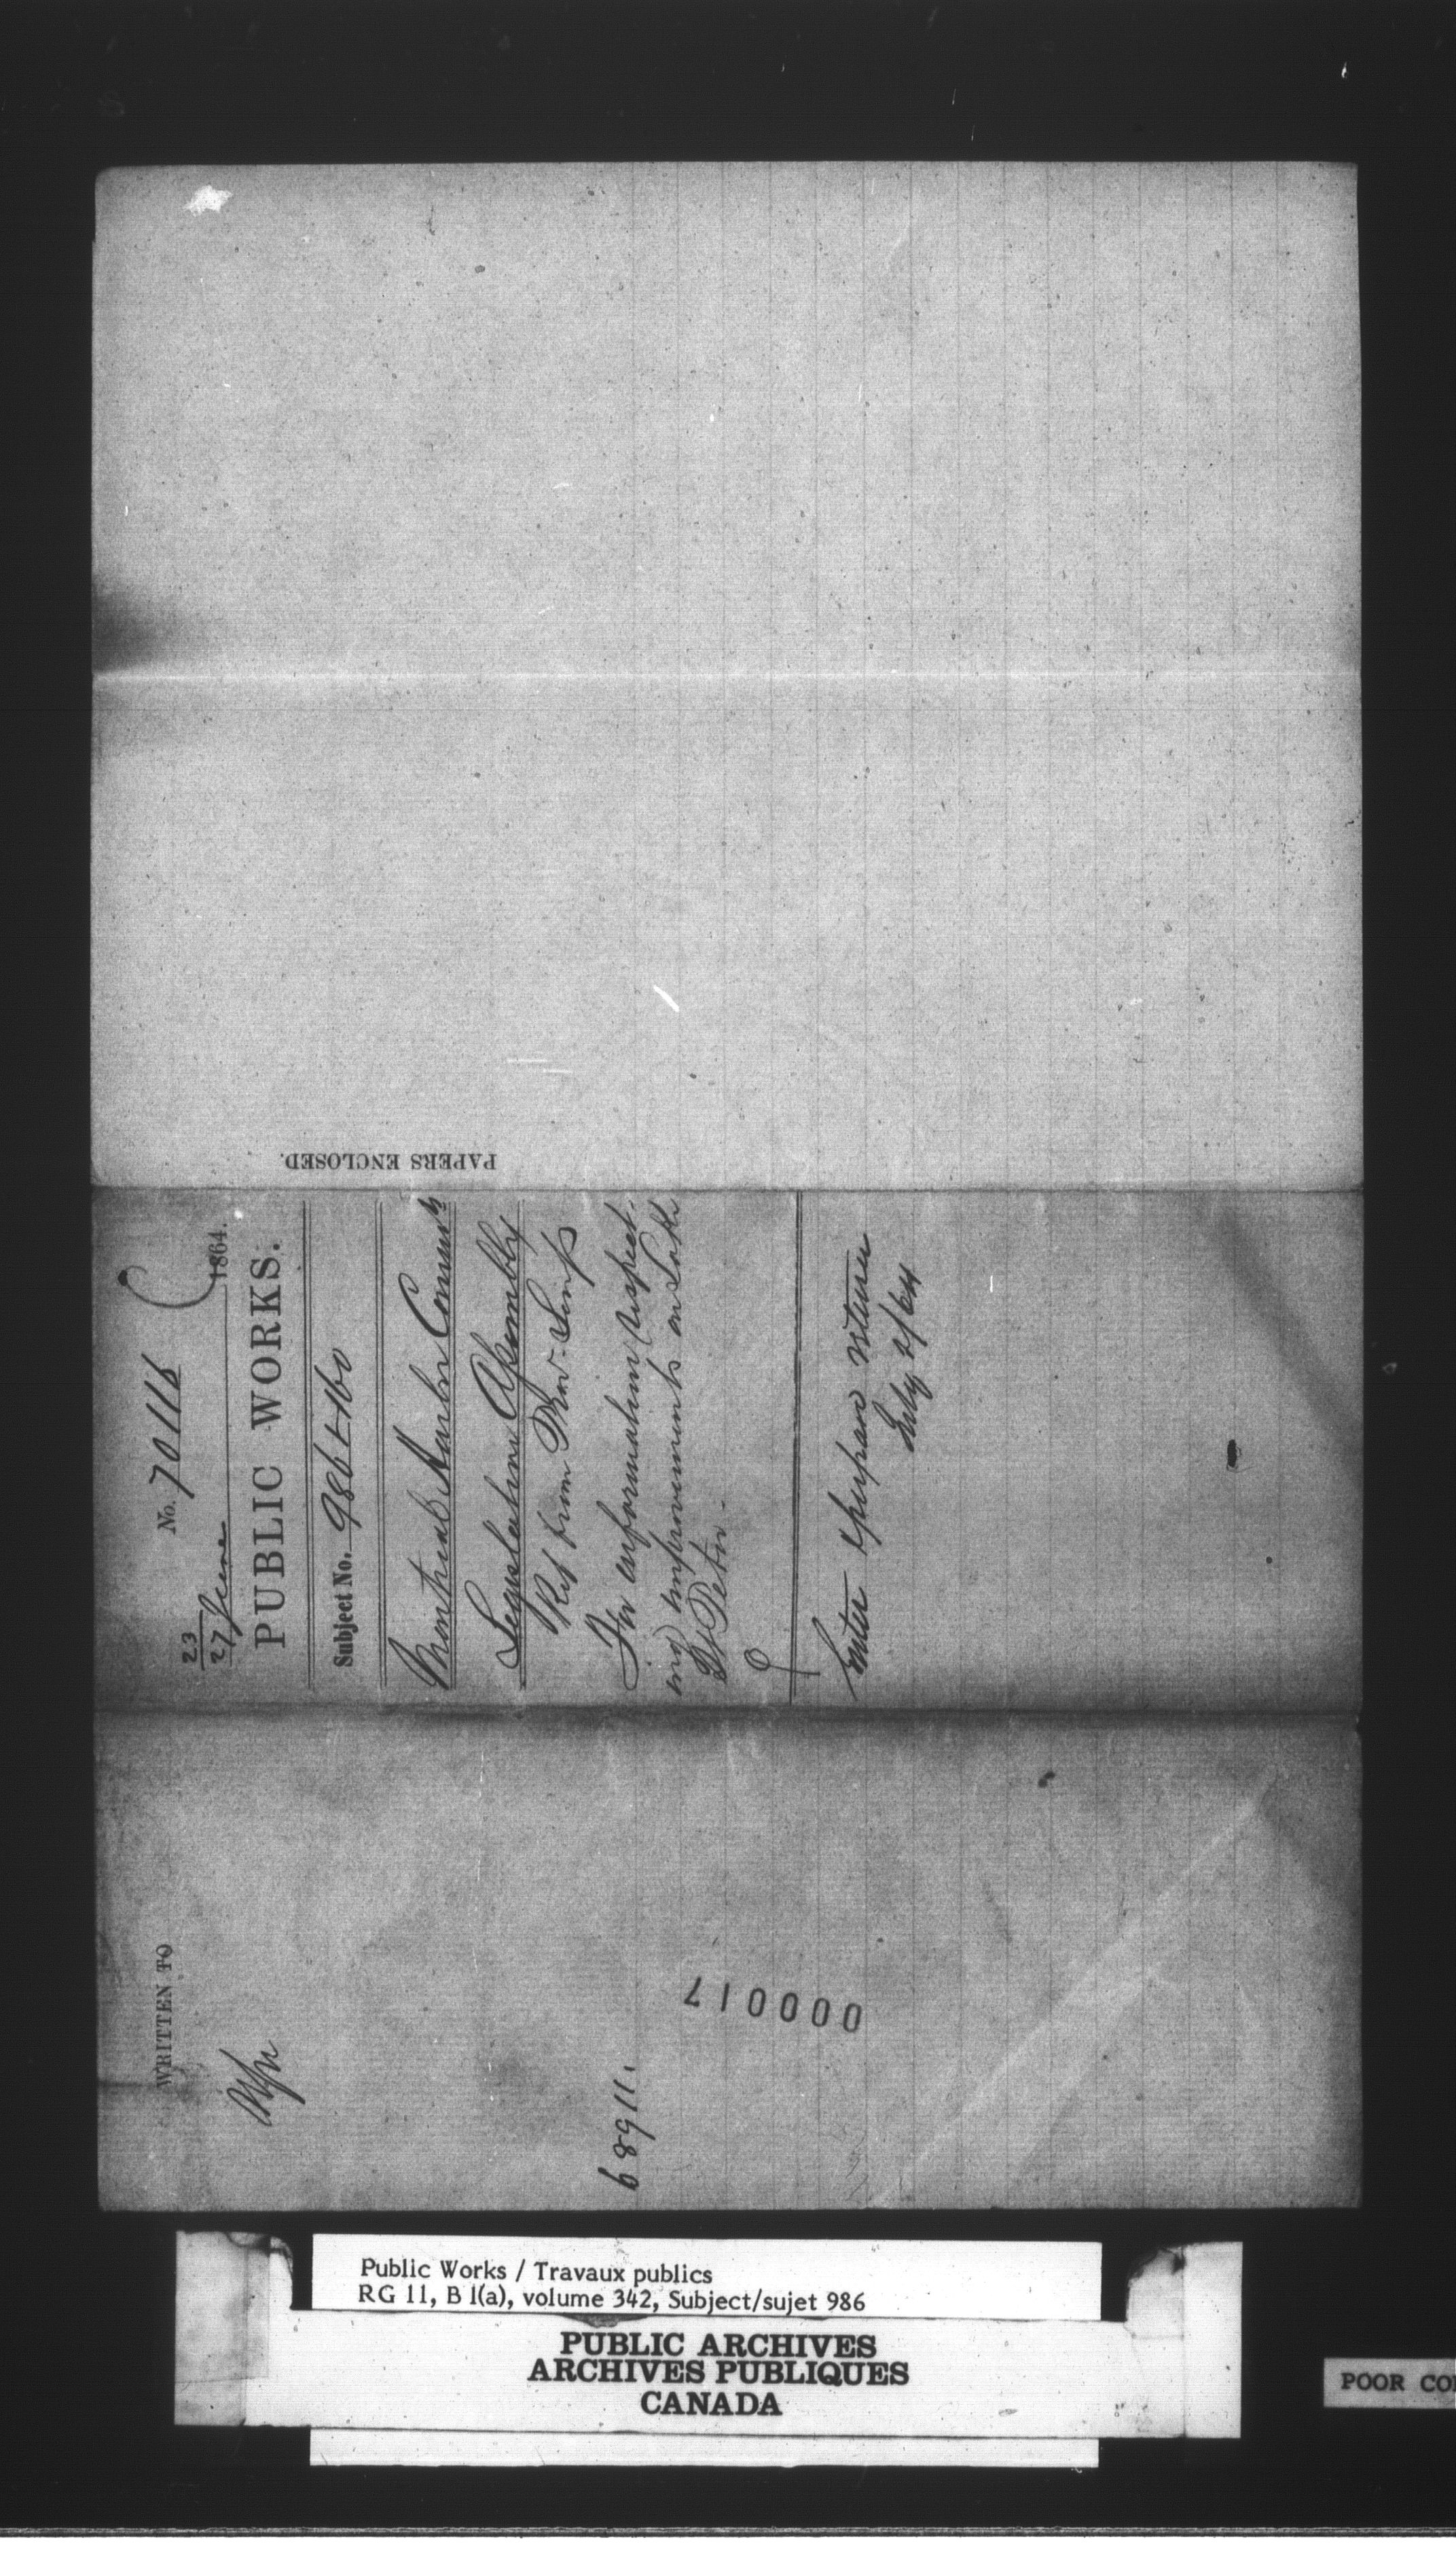 PAPERS ENCLOSED.
No. 70116
23
27 June 1864.
PUBLIC WORKS.
Subject No. 986 & 160
Montreal Harbor Comm rs
Legislative Assembly
Ref from Prov. Sec
For information respect-
ing improvements on Lake
St Peter.
Enter return
July 2/64
WRITTEN TO
68911.
000017
Public Works / Travaux publics
RG 11, B 1(a), volume 342, Subject/sujet 986
PUBLIC ARCHIVES
ARCHIVES PUBLIQUES
CANADA
POOR